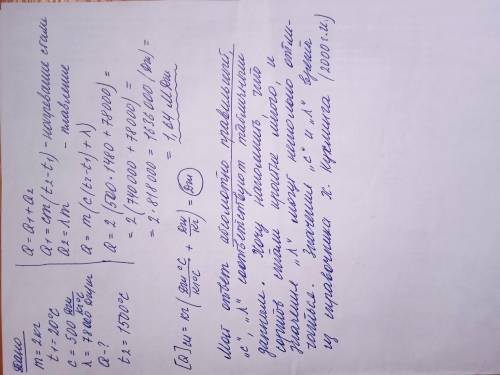 Дано
m = 2 кг
t₁ = 20°C
c = 500 Дж/кг°C
λ = 78000 Дж/кг
Q - ?
t₂ = 1500°C
Q = Q₁ + Q₂
Q₁ = cm(t₂-t₁) - нагревание стали
Q₂ = λm - плавление
Q = m(c(t₂-t₁) + λ)
Q = 2(500·1480 + 78000) =
= 2(740000 + 78000) =
= 2·818000 = 1636000 (Дж) =
= 1,64 МДж
= кг(Дж°C/кг°C + Дж/кг) = Дж
Мой ответ абсолютно правильный,
"c" "λ" соответствуют табличным
данным. Хочу напомнить что
сортов стали крайне много, и
значения "λ" могут немного отли-
чаться. Значения "c" и "λ" брала
из справочника х. Кухлинга (2000 г.и)